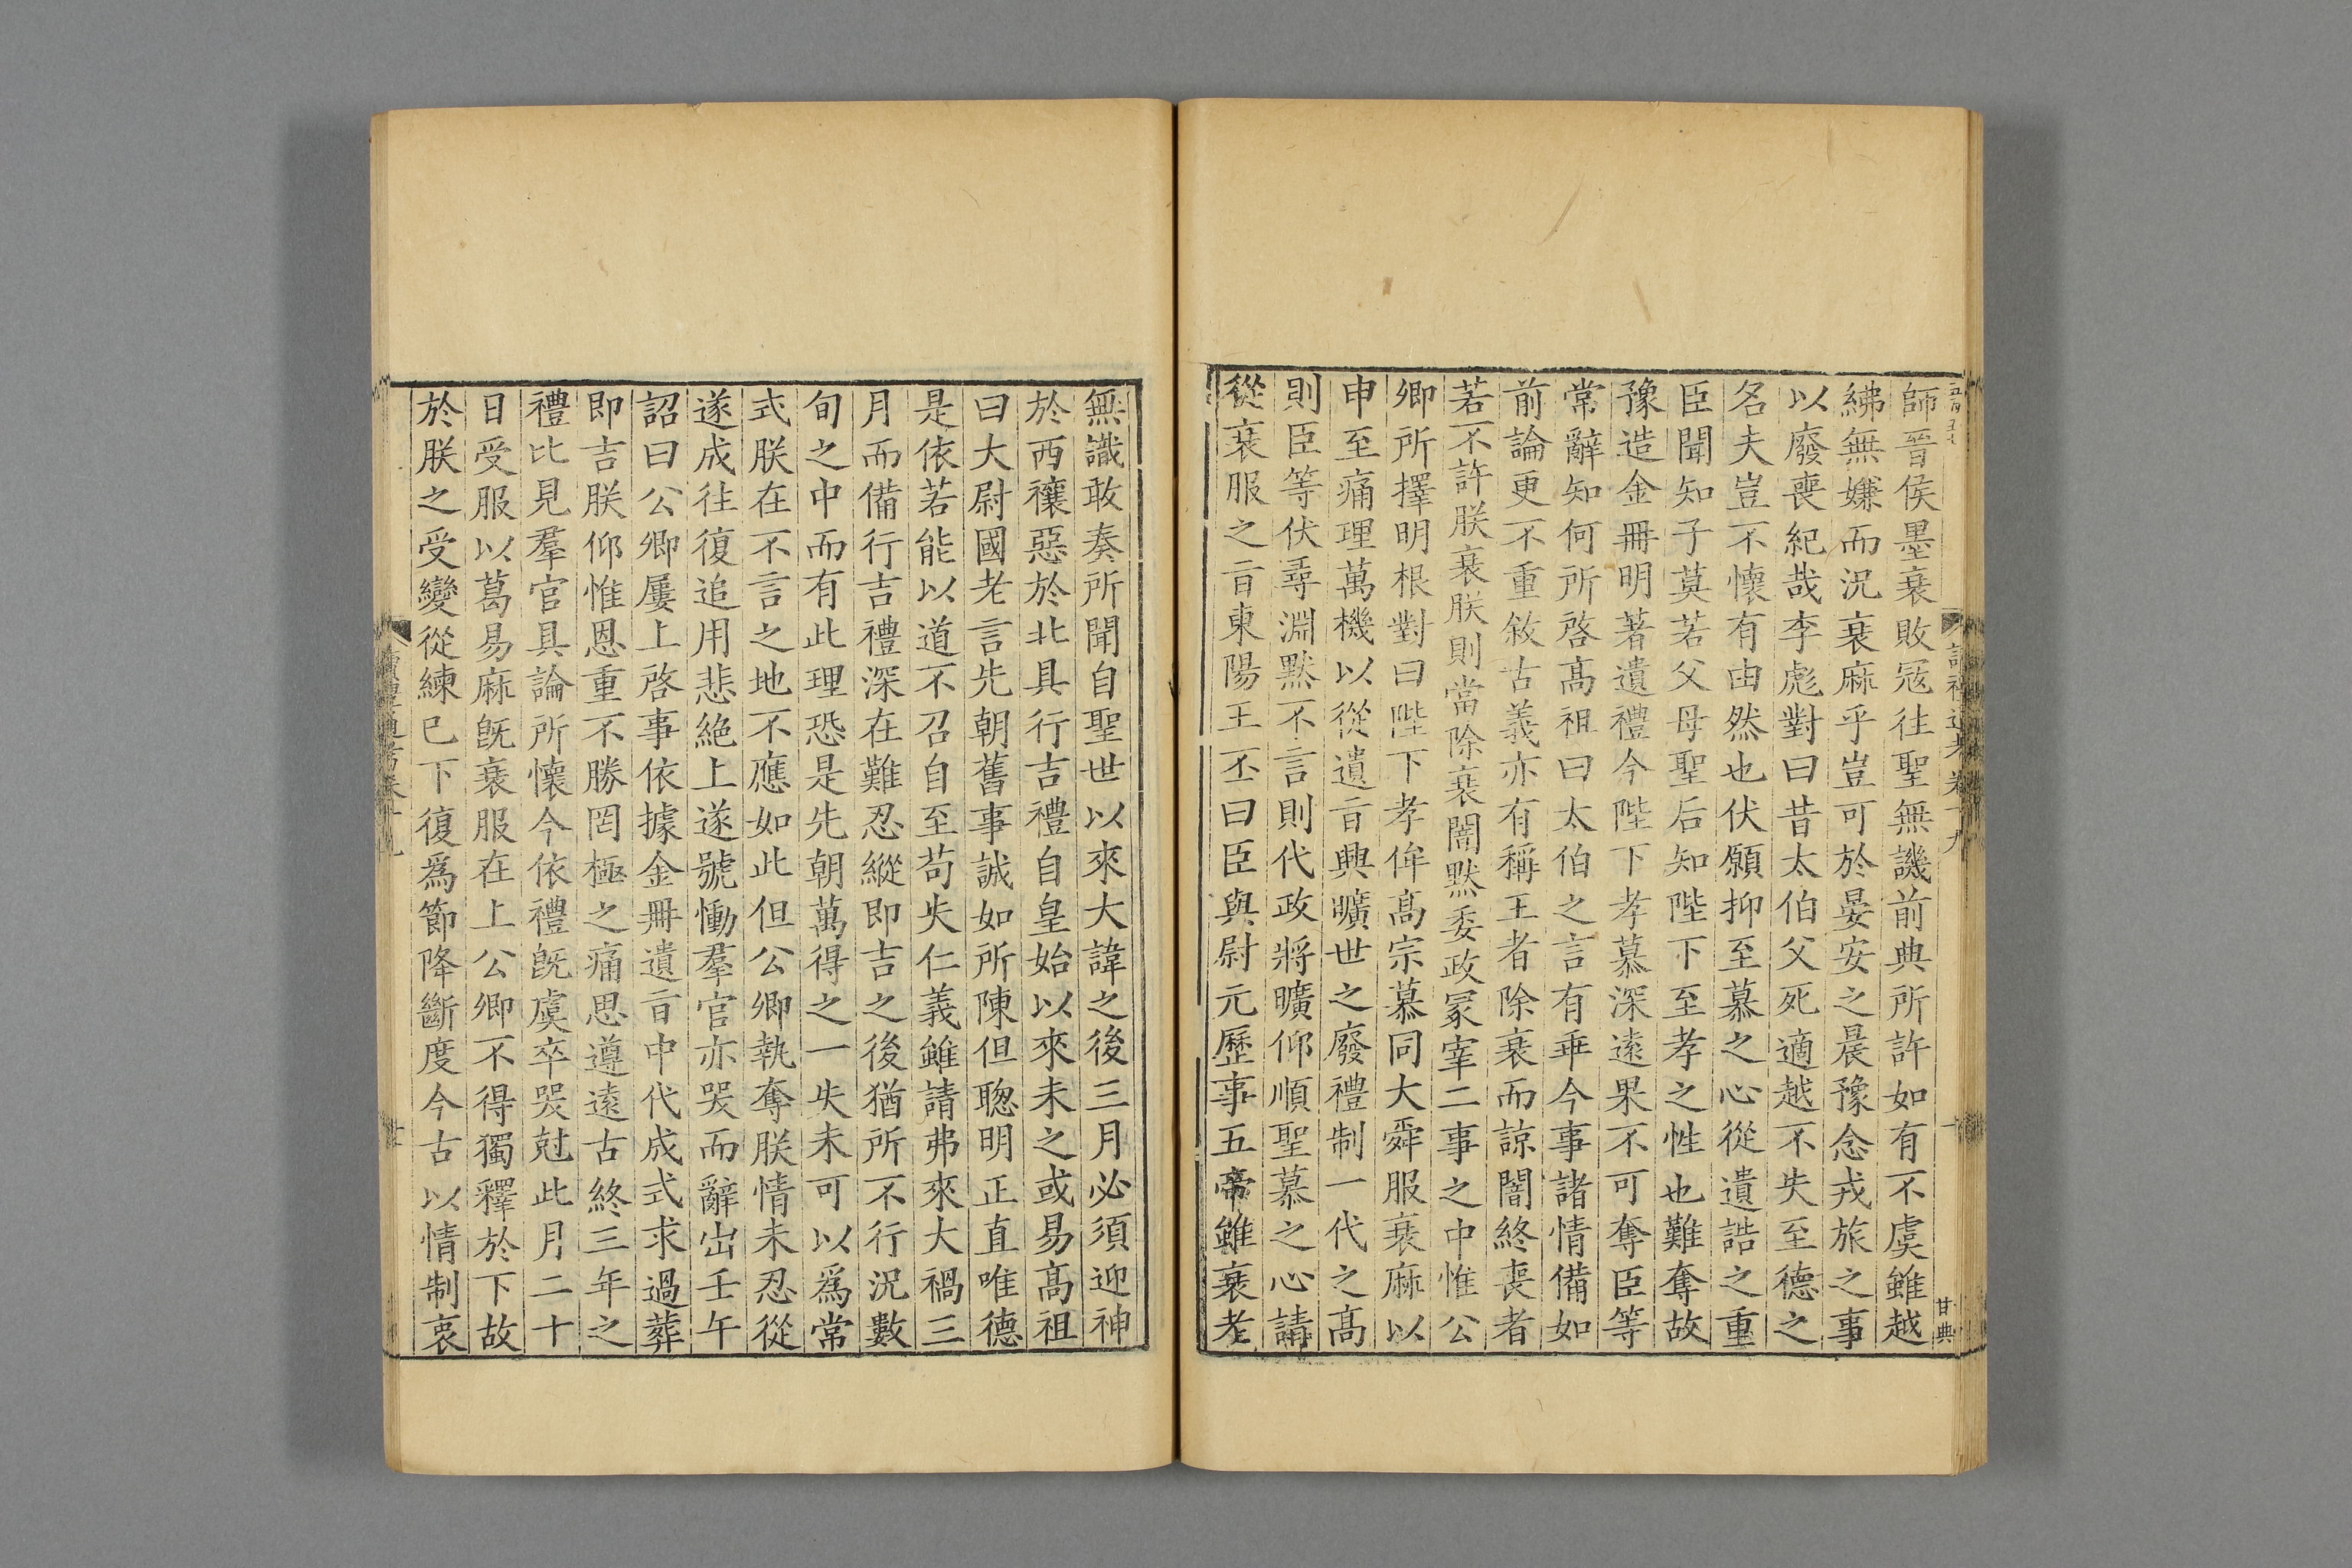 師晉侯墨衰敗冦往聖無譏前典所許如有不虞雖越
紼無嫌而況衰麻乎豈可於晏安之晨豫念戎旅之事
以廢喪紀哉李彪對曰昔太伯父死適越不失至德之
名夫豈不懷有由然也伏願抑至慕之心從遺誥之重
臣聞知子莫若父母聖后知陛下至孝之性也難奪故
豫造金冊明著遺禮今陛下孝慕深遠果不可奪臣等
常辭知何所啓高祖曰太伯之言有乖今事諸情備如
前論更不重敘古義亦有稱王者除衰而諒闇終喪者
若不許朕衰朕則當除衰闇默委政冢宰二事之中惟公
卿所擇明根對曰陛下孝侔高宗慕同大舜服衰麻以
申至痛理萬機以從遺㫖興曠世之廢禮制一代之高
則臣等伏尋淵默不言則代政將曠仰順聖慕之心請
從衰服之㫖東陽王丕曰臣與尉元歷事五帝雖衰老
甘典
無識敢奏所聞自聖世以來大諱之後三月必須迎神
於西禳惡於北具行吉禮自皇始以來未之或易高祖
曰大尉國老言先朝舊事誠如所陳但聰明正直唯德
是依若能以道不召自至苟失仁義雖請弗來大禍三
月而備行吉禮深在難忍縱即吉之後猶所不行況數
旬之中而有此理恐是先朝萬得之一失未可以爲常
式朕在不言之地不應如此但公卿執奪朕情未忍從
遂成往復追用悲絶上遂號慟羣官亦哭而辭出壬午
詔曰公卿屢上啓事依據金冊遺㫖中代成式求過葬
即吉朕仰惟恩重不勝罔極之痛思遵遠古終三年之
禮比見羣官具論所懷今依禮旣虞卒哭尅此月二十
日受服以葛易麻旣衰服在上公卿不得獨釋於下故
於朕之受變從練已下復爲節降斷度今古以情制衷